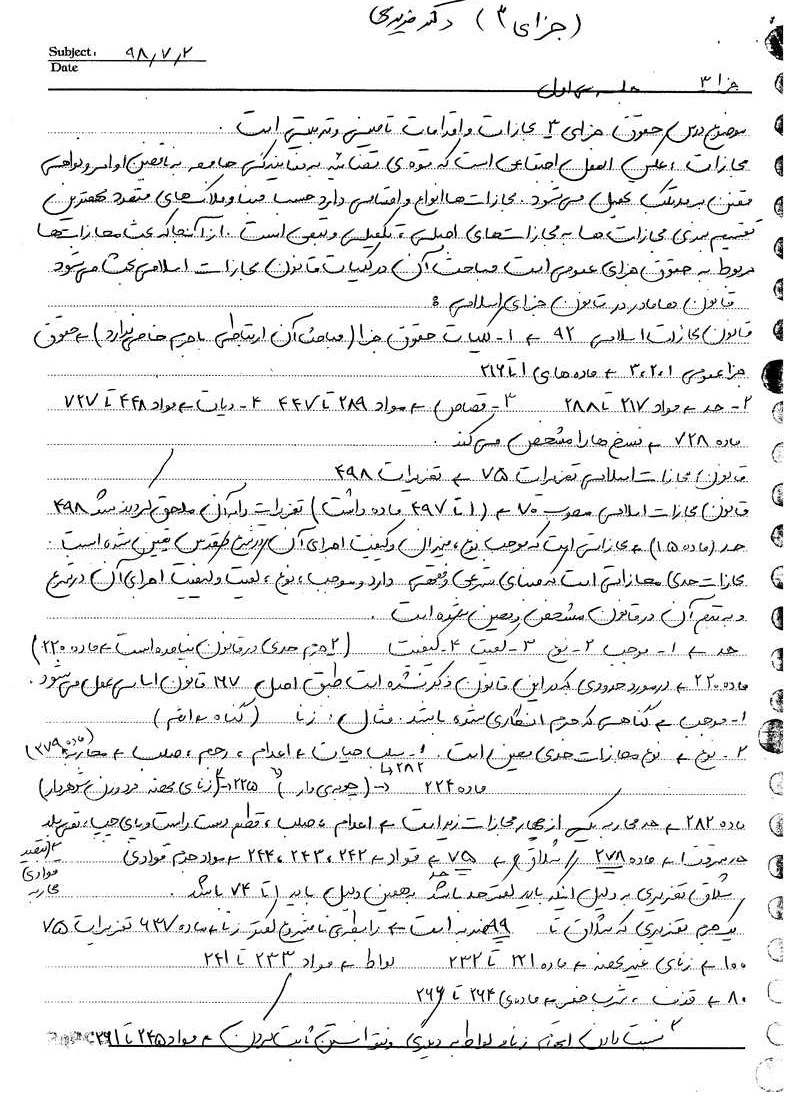 (جزای ۳) دکتر
Subject: ۹۸/۷/۲
Date
جزا ۳ جلسه ی اول
موضوع درس حقوق جزای ۳ مجازات و اقدامات تامینی و تربیتی است .
مجازات ، عکس العمل اجتماعی است که قوه ی قضائیه به نمایندگی جامعه به ناقضین اوامر و نواهی
مقنن به مرتکب تحمیل می‌شود . مجازات ها انواع و اقسامی دارد حسب مبنا و ملاک های متعدد مهمترین
تقسیم بندی مجازات ها به مجازات های اصلی ، تکمیلی و تبعی است . از آنجا که بحث مجازات ها
مربوط به حقوق جزای عمومی است مباحث آن در کلیات قانون مجازات اسلامی بحث می‌شود
قانون ها مادر در قانون جزای اسلامی :
قانون مجازات اسلامی ۹۲ ← ۱- کلیات حقوق جزا (مباحث آن ارتباطی با جرم خاصی ندارد) ← حقوق
جزا عمومی ۳،۲،۱ ← ماده های ۱ تا ۲۱۶
۲- حد ← مواد ۲۱۷ تا ۲۸۸ ۳- قصاص ← مواد ۲۸۹ تا ۴۴۷ ۴- دیات ← مواد ۴۴۸ تا ۷۲۷
ماده ۷۲۸ ← نسخ ها را مشخص می‌کند .
قانون مجازات اسلامی تعزیرات ۷۵ ← تعزیرات ۴۹۸
قانون مجازات اسلامی مصوب ۷۰ ← (۱ تا ۴۹۷ ماده داشت) تعزیرات به آن ملحق گردید شد ۴۹۸
حد (ماده ۱۵) ← مجازاتی است که موجب نوع ، میزان و کیفیت اجرای آن در شرع مقدس تعیین شده است .
مجازات حدی مجازاتی است که مبنای شرعی و فقهی دارد و موجب ، نوع ، کمیت و کیفیت اجرای آن در شرع
و به تبع آن در قانون مشخص و معین شده است .
حد ← ۱- موجب ۲- نوع ۳- کمیت ۴- کیفیت (۲ جرم حدی در قانون نیامده است ← ماده ۲۲۰)
ماده ۲۲۰ ← در مورد حدودی که در این قانون ذکر نشده است طبق اصل ۱۶۷ قانون اساسی عمل می‌شود .
۱- موجب ← گناهی که جرم انگاری شده باشد . مثال : زنا (گناه ← اثم)
۲- نوع ← نوع مجازات حدی معین است . ۱- سلب حیات ← اعدام ، رجم ، صلب ← محاربه (ماده ۲۷۹)
ماده ۲۲۴ ← ۲۸۲ (چوبه ی دار) ← ۲۲۵ (زنای محصنه مرد و زن شوهردار)
ماده ۲۸۲ ← حد محاربه یکی از چهار مجازات زیر است ← اعدام ، صلب ، قطع دست راست و پای چپ ، نفی بلد
حد سرقت ← ماده ۲۷۸ / شلاق ← ۷۵ ← قوادی ← ۲۴۲ ، ۲۴۳ ، ۲۴۴ ← مواد جرم قوادی
۳ (تبعید
قوادی
محاربه
شلاق تعزیری به دلیل اینکه باید کمتر حد باشد به همین دلیل باید ۱ تا ۷۴ باشد .
یک جرم تعزیری که شلاق تا ۹۹ ضربه است ← رابطه ی نامشروع کمتر زنا ← ماده ۶۳۷ تعزیرات ۷۵
۱۰۰ ← زنای غیر محصنه ← ماده ۲۲۱ تا ۲۳۲ لواط ← مواد ۲۳۳ تا ۲۴۱
۸۰ ← قذف ، شرب خمر ← ماده ی ۲۶۴ تا ۲۶۶
نسبت دادن اتهام زنا و لواط به دیگری و نتوانستن ثابت کردن ← مواد ۲۴۵ تا ۲۶۱